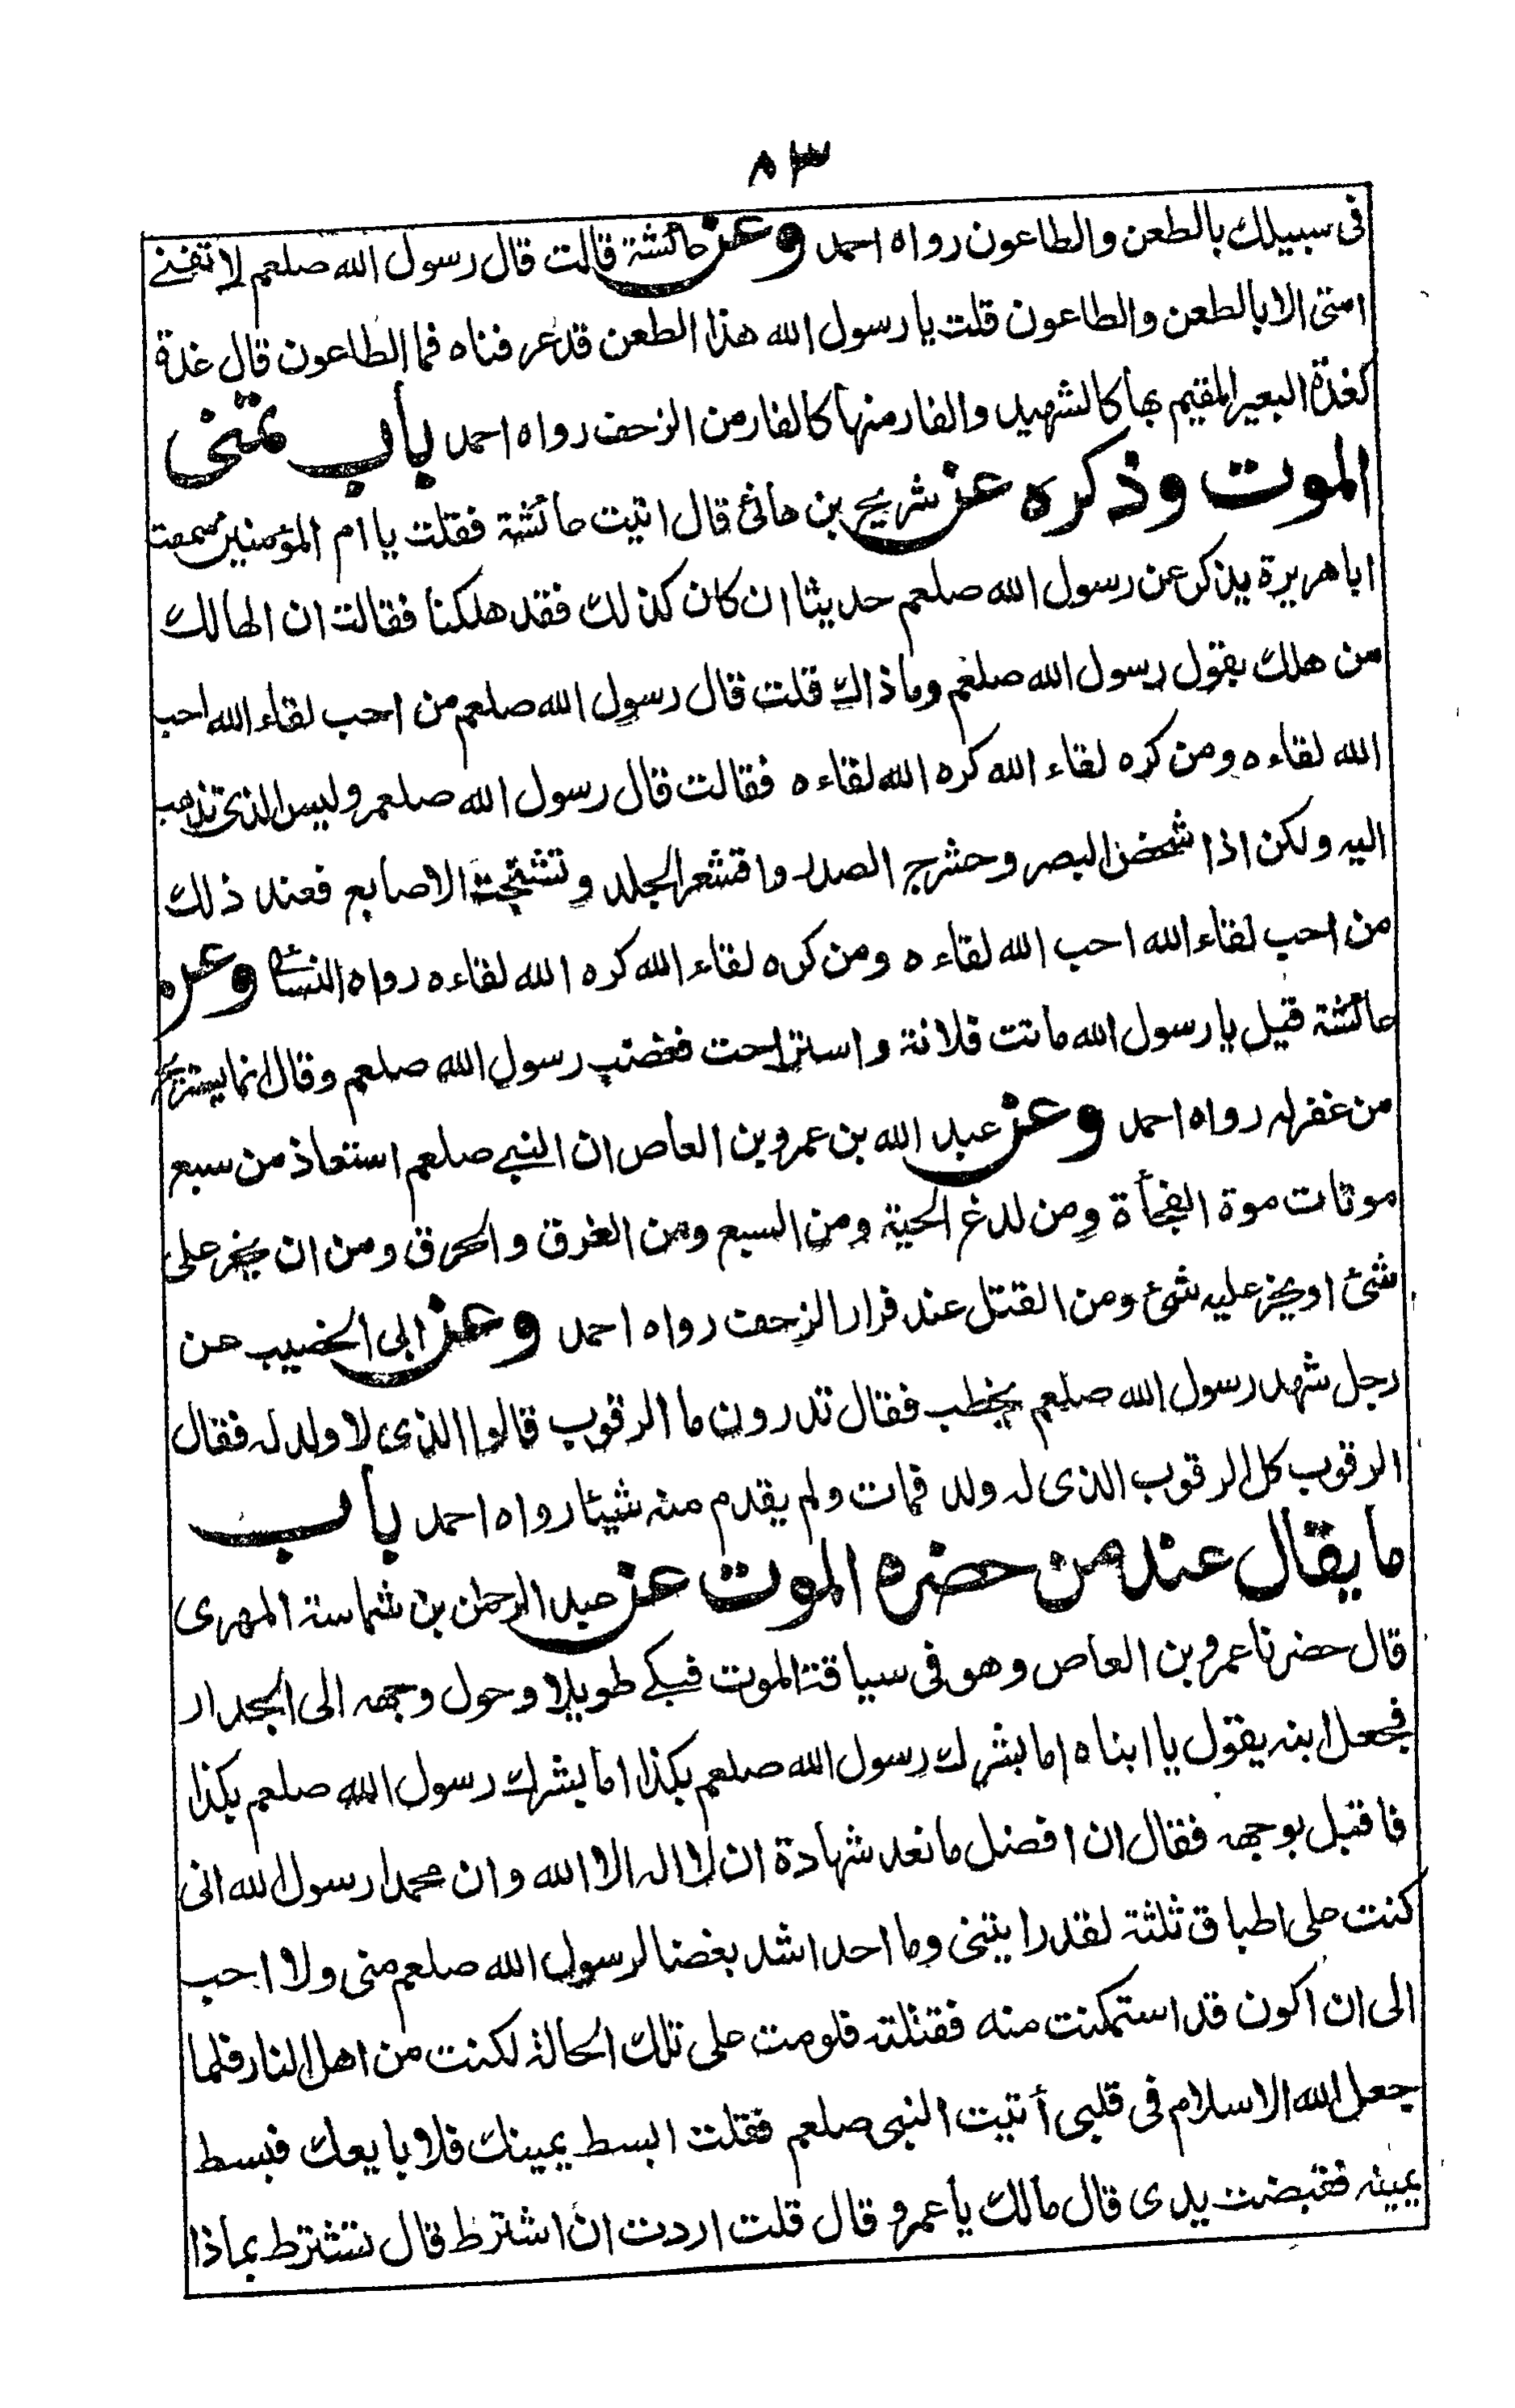 ٨٣
فى سبيلك بالطعن والطاعون رواه احمد وعن عائشة قالت قال رسول الله صلعم لا تفنے
امتى الا بالطعن والطاعون قلت يا رسول الله هذا الطعن قد عرفناه فما الطاعون قال غدة
كغدة البعير المقيم بها كالشهيد والفار منها كالفار من الزحف رواه احمد باب تمنى
الموت وذكره عن شريح بن هانئ قال اتيت عائشة فقلت يا ام المؤمنين سمعت
ابا هريرة يذكر عن رسول الله صلعم حديثا ان كان كذلك فقد هلكنا فقالت ان الهالك
من هلك بقول رسول الله صلعم وما ذاك قلت قال رسول الله صلعم من احب لقاء الله احب
الله لقاءه ومن كره لقاء الله كره الله لقاءه فقالت قال رسول الله صلعم وليس الذى تذهب
اليه ولكن اذا شخص البصر وحشرج الصدر واقشعر الجلد وتشنجت الاصابع فعند ذلك
من احب لقاء الله احب الله لقاءه ومن كره لقاء الله كره الله لقاءه رواه النسائى وعن
عائشة قيل يا رسول الله ماتت فلانة واستراحت فغضب رسول الله صلعم وقال انما يستريح
من غفر له رواه احمد وعن عبد الله بن عمرو بن العاص ان النبے صلعم استعاذ من سبع
موتات موة الفجأة ومن لدغ الحية ومن السبع ومن الغرق والحرق ومن ان يخر على
شئ او يخر عليه شئ ومن القتل عند فرار الزحف رواه احمد وعن ابى الخصيب عن
رجل شهد رسول الله صلعم يخطب فقال تدرون ما الرقوب قالوا الذى لا ولد له فقال
الرقوب كل الرقوب الذى له ولد فمات ولم يقدم منه شيئا رواه احمد باب
ما يقال عند من حضره الموت عن عبد الرحمن بن شماسة المهرى
قال حضرنا عمرو بن العاص وهو فى سياقة الموت فبكے طويلا وحول وجهه الى الجدار
فجعل ابنه يقول يا ابتاه اما بشرك رسول الله صلعم بكذا اما بشرك رسول الله صلعم بكذا
فاقبل بوجهه فقال ان افضل ما نعد شهادة ان لا اله الا الله وان محمدا رسول الله انى
كنت على اطباق ثلثة لقد رايتنى وما احد اشد بغضا لرسول الله صلعم منى ولا احب
الى ان اكون قد استمكنت منه فقتلته فلو مت على تلك الحالة لكنت من اهل النار فلما
جعل الله الاسلام فى قلبى أتيت النبى صلعم فقلت ابسط يمينك فلا بايعك فبسط
يمينه فقبضت يدى قال مالك يا عمرو قال قلت اردت ان اشترط قال تشترط بماذا